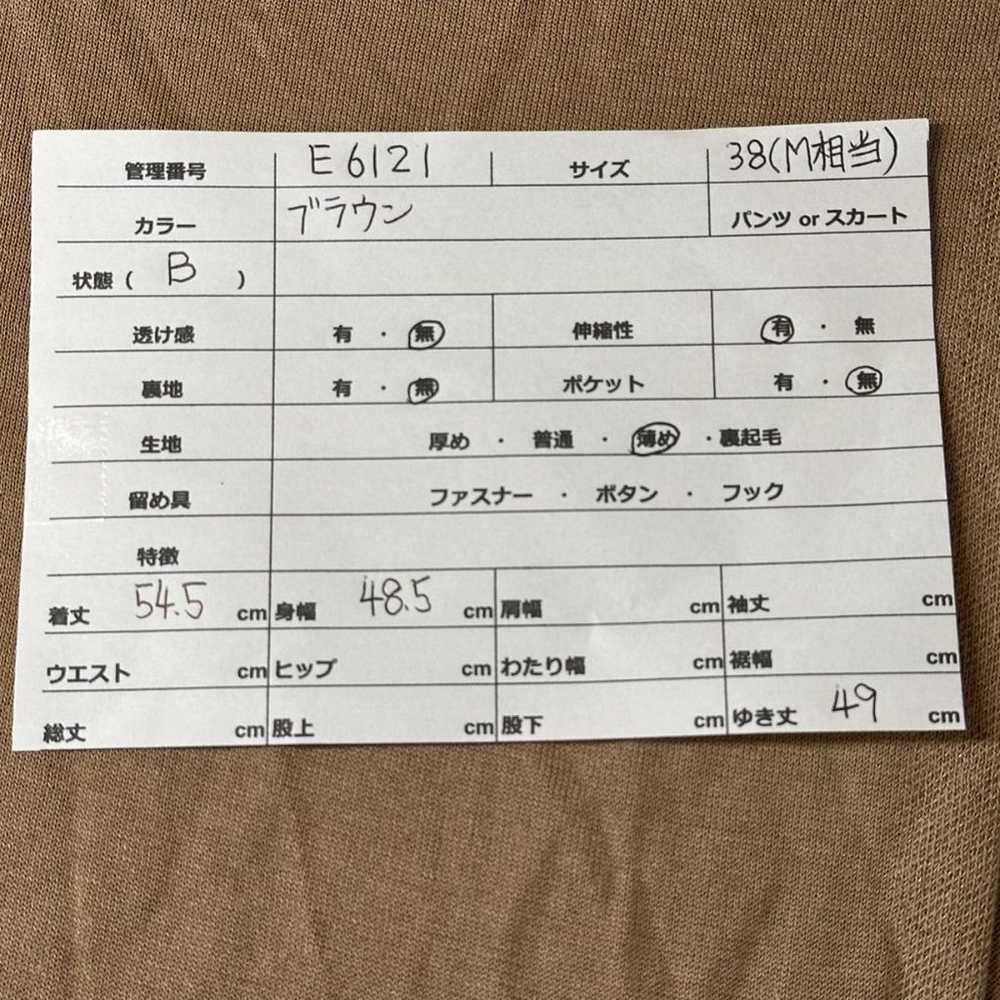 管理番号 E6121 サイズ 38(M相当)
カラー ブラウン パンツ or スカート
状態 ( B )
透け感 有 ・ 無 伸縮性 有 ・ 無
裏地 有 ・ 無 ポケット 有 ・ 無
生地 厚め ・ 普通 ・ 薄め ・ 裏起毛
留め具 ファスナー ・ ボタン ・ フック
特徴
着丈 54.5 cm 身幅 48.5 cm 肩幅 cm 袖丈 cm
ウエスト cm ヒップ cm わたり幅 cm 裾幅 cm
総丈 cm 股上 cm 股下 cm ゆき丈 49 cm